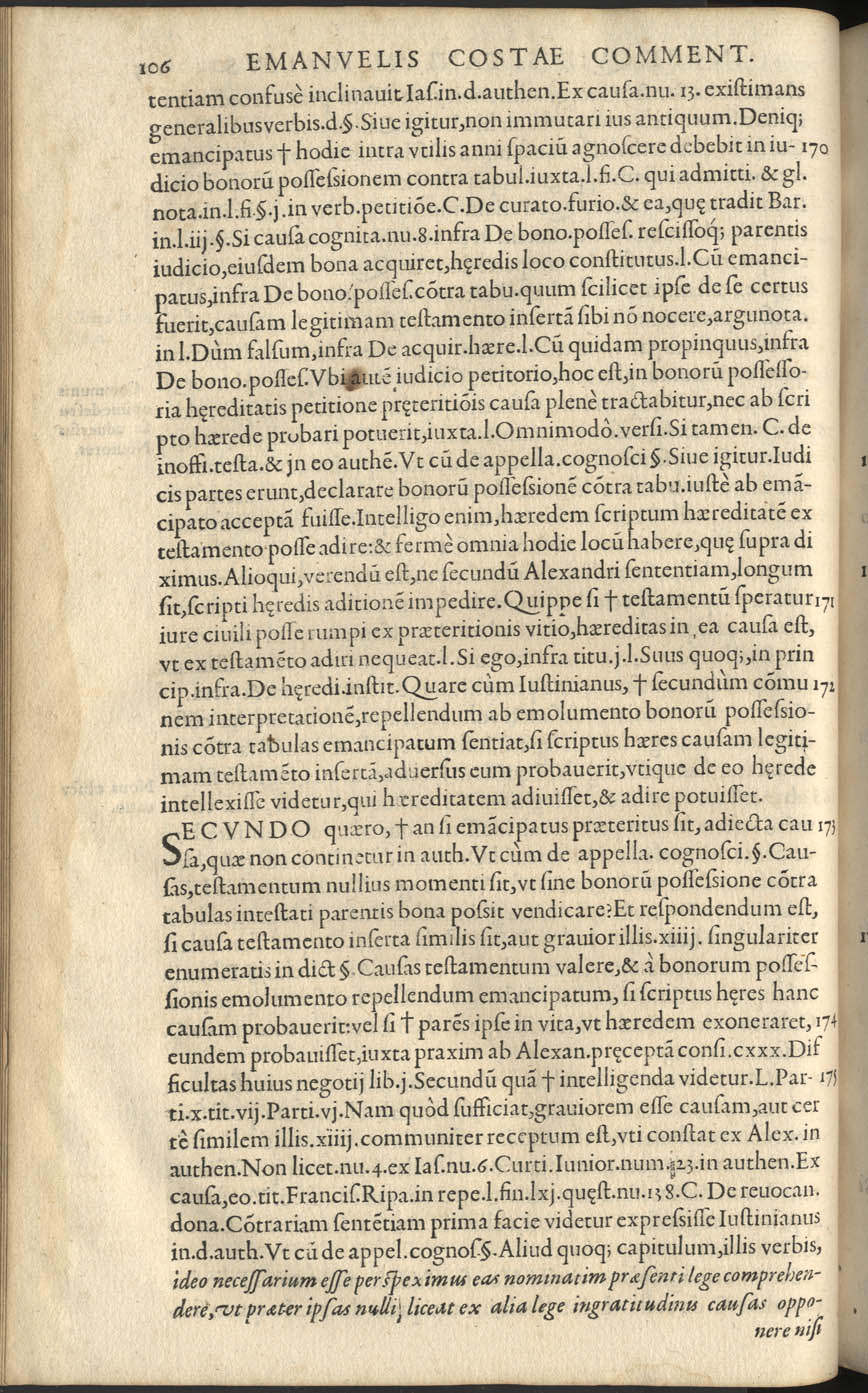 106 EMANVELIS COSTAE COMMENT.
tentiam confusè inclinauit Iaſ.in.d.authen.Ex cauſa.nu. 13. exiſtimans
generalibus verbis.d.§.Siue igitur,non immutari ius antiquum.Deniq;
emancipatus † hodie intra vtilis anni ſpaciũ agnoſcere debebit in iu- 170
dicio bonorũ poſſeſsionem contra tabul.iuxta.l.fi.C. qui admitti. & gl.
nota.in.l.fi.§.j.in verb.petitiõe.C.De curato.furio.& ea,quę tradit Bar.
in.l.iij.§.Si cauſa cognita.nu.8.infra De bono.poſſeſ. reſciſſoq́; parentis
iudicio,eiuſdem bona acquiret,hęredis loco conſtitutus.l.Cũ emanci-
patus,infra De bono.poſſeſ.cõtra tabu.quum ſcilicet ipſe de ſe certus
fuerit,cauſam legitimam teſtamento inſertã ſibi nõ nocere,argu nota.
in l.Dùm falſum,infra De acquir.hære.l.Cũ quidam propinquus,infra
De bono.poſſeſ.Vbi autẽ iudicio petitorio,hoc eſt,in bonorũ poſſeſſo-
ria hęreditatis petitione pręteritiõis cauſa plenè tractabitur,nec ab ſcri
pto hærede probari potuerit,iuxta.l.Omnimodò.verſi.Si tamen. C. de
inoffi.teſta.& jn eo authẽ.Vt cũ de appella.cognoſci §.Siue igitur.Iudi
cis partes erunt,declarare bonorũ poſſeſsionẽ cõtra tabu.iuſtè ab emã-
cipato acceptã fuiſſe.Intelligo enim,hæredem ſcriptum hæreditatẽ ex
teſtamento poſſe adire:& fermè omnia hodie locũ habere,quę ſupra di
ximus.Alioqui,verendũ eſt,ne ſecundũ Alexandri ſententiam,longum
ſit,ſcripti hęredis aditionẽ impedire.Quippe ſi † teſtamentũ ſperatur 171
iure ciuili poſſe rumpi ex præteritionis vitio,hæreditas in ea cauſa eſt,
vt ex teſtamẽto adiri nequeat.l.Si ego,infra titu.j.l.Suus quoq;,in prin
cip.infra.De hęredi.inſtit.Quare cùm Iuſtinianus, † ſecundùm cõmu 172
nem interpretationẽ,repellendum ab emolumento bonorũ poſſeſsio-
nis cõtra tabulas emancipatum ſentiat,ſi ſcriptus hæres cauſam legiti-
mam teſtamẽto inſertã,aduerſus eum probauerit,vtique de eo hęrede
intellexiſſe videtur,qui hæreditatem adiuiſſet,& adire potuiſſet.
SECVNDO quæro, † an ſi emãcipatus præteritus ſit, adiecta cau 173
ſa,quæ non continetur in auth.Vt cùm de appella. cognoſci.§.Cau-
ſas,teſtamentum nullius momenti ſit,vt ſine bonorũ poſſeſsione cõtra
tabulas inteſtati parentis bona poſsit vendicare?Et reſpondendum eſt,
ſi cauſa teſtamento inſerta ſimilis ſit,aut grauior illis.xiiij. ſingulariter
enumeratis in dict §.Cauſas teſtamentum valere,& à bonorum poſſeſ-
ſionis emolumento repellendum emancipatum, ſi ſcriptus hęres hanc
cauſam probauerit:vel ſi † parẽs ipſe in vita,vt hæredem exoneraret, 174
eundem probauiſſet,iuxta praxim ab Alexan.pręceptã conſi.cxxx.Dif
ficultas huius negotij lib.j.Secundũ quã † intelligenda videtur.L.Par- 175
ti.x.tit.vij.Parti.vj.Nam quòd ſufficiat,grauiorem eſſe cauſam,aut cer
tè ſimilem illis.xiiij.communiter receptum eſt,vti conſtat ex Alex. in
authen.Non licet.nu.4.ex Iaſ.nu.6.Curti.Iunior.num.23.in authen.Ex
cauſa,eo.tit.Franciſ.Ripa.in repe.l.fin.lxj.quęſt.nu.138.C. De reuocan.
dona.Cõtrariam ſentẽtiam prima facie videtur expreſsiſſe Iuſtinianus
in.d.auth.Vt cũ de appel.cognoſ.§.Aliud quoq; capitulum,illis verbis,
ideo neceſſarium eſſe perſpeximus eas nominatim præſenti lege comprehen-
dere,vt præter ipſas nulli liceat ex alia lege ingratitudinis cauſas oppo-
nere niſi